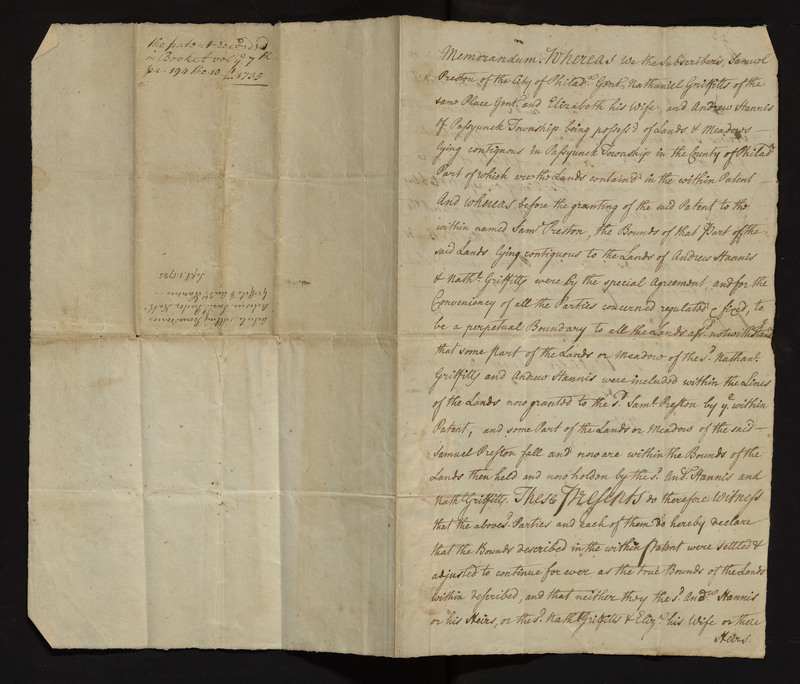 the patent recorded
in Booke A vol: 7th
pa. 194 the 10 1735
Article settling Boundaries
Between Saml. Preston Nath:
Griffitts & Andw. Hannis
Sept. 1735
Memorandum. Whereas We the Subscribers, Samuel
Preston of the City of Philad.ª Gent. Nathaniel Griffitts of the
same Place Gent. and Elizabeth his Wife, and Andrew Hannis
of Passyunck Township being possess'd of Lands & Meadows —
lying contiguous in Passyunck Township in the County of Philad.ª
Part of which are the Lands contain'd in the within Patent —
And whereas before the granting of the said Patent to the
within named Sam.l Preston, the Bounds of that Part of the
said Lands lying contiguous to the Lands of Andrew Hannis
& Nath.l Griffitts were by the special Agreement, and for the
Conveniency of all the Parties concerned regulated & fixed, to
be a perpetual Boundary to all the Lands afs.d notwithstand
that some Part of the Lands or Meadow of the s.d Nathan.l
Griffitts and Andrew Hannis were included within the Lines
of the Lands now granted to the s.d Sam.l Preston by y.e within
Patent, and some Part of the Lands or Meadow of the said —
Samuel Preston fell and now are within the Bounds of the
Lands then held and now holden by the s.d And.w Hannis and
Nath.l Griffitts. These Presents do therefore Witness
that the above s.d Parties and each of them do hereby declare
that the Bounds described in the within Patent were settled &
adjusted to continue for ever as the true Bounds of the Lands
within described, and that neither they the s.d And.w Hannis
or his Heirs, or the s.d Nath.l Griffitts & Eliz.ª his Wife or their
Heirs.